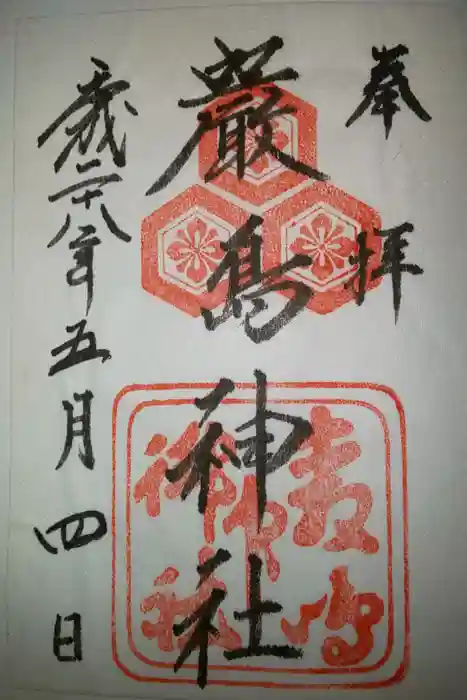 奉拝
嚴島神社
平成二十八年五月四日